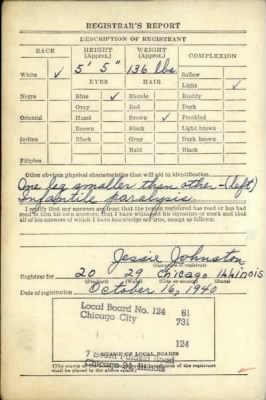 REGISTRAR'S REPORT
DESCRIPTION OF REGISTRANT
RACE HEIGHT (Approx.) WEIGHT (Approx.) COMPLEXION
5' 5" 136 lbs. Sallow
White ✓ EYES HAIR Light ✓
Negro Blue ✓ Blonde Ruddy
Gray Red Dark
Oriental Hazel Brown ✓ Freckled
Brown Black Light brown
Indian Black Gray Dark brown
Bald Black
Filipino
Other obvious physical characteristics that will aid in identification
One leg smaller than other - (left)
Infantile paralysis.
I certify that my answers are true; that the person registered has read or has had
read to him his own answers; that I have witnessed his signature or mark and that
all of his answers of which I have knowledge are true, except as follows:
Jessie Johnston
(Signature of registrar)
Registrar for 20 29 Chicago Illinois
(Precinct) (Ward) (City or county) (State)
Date of registration October 16, 1940
Local Board No. 124 61
Chicago City 731
124
STAMP OF LOCAL BOARD
Chicago, Illinois
(The stamp of the Local Board
shall be placed in the above space.)